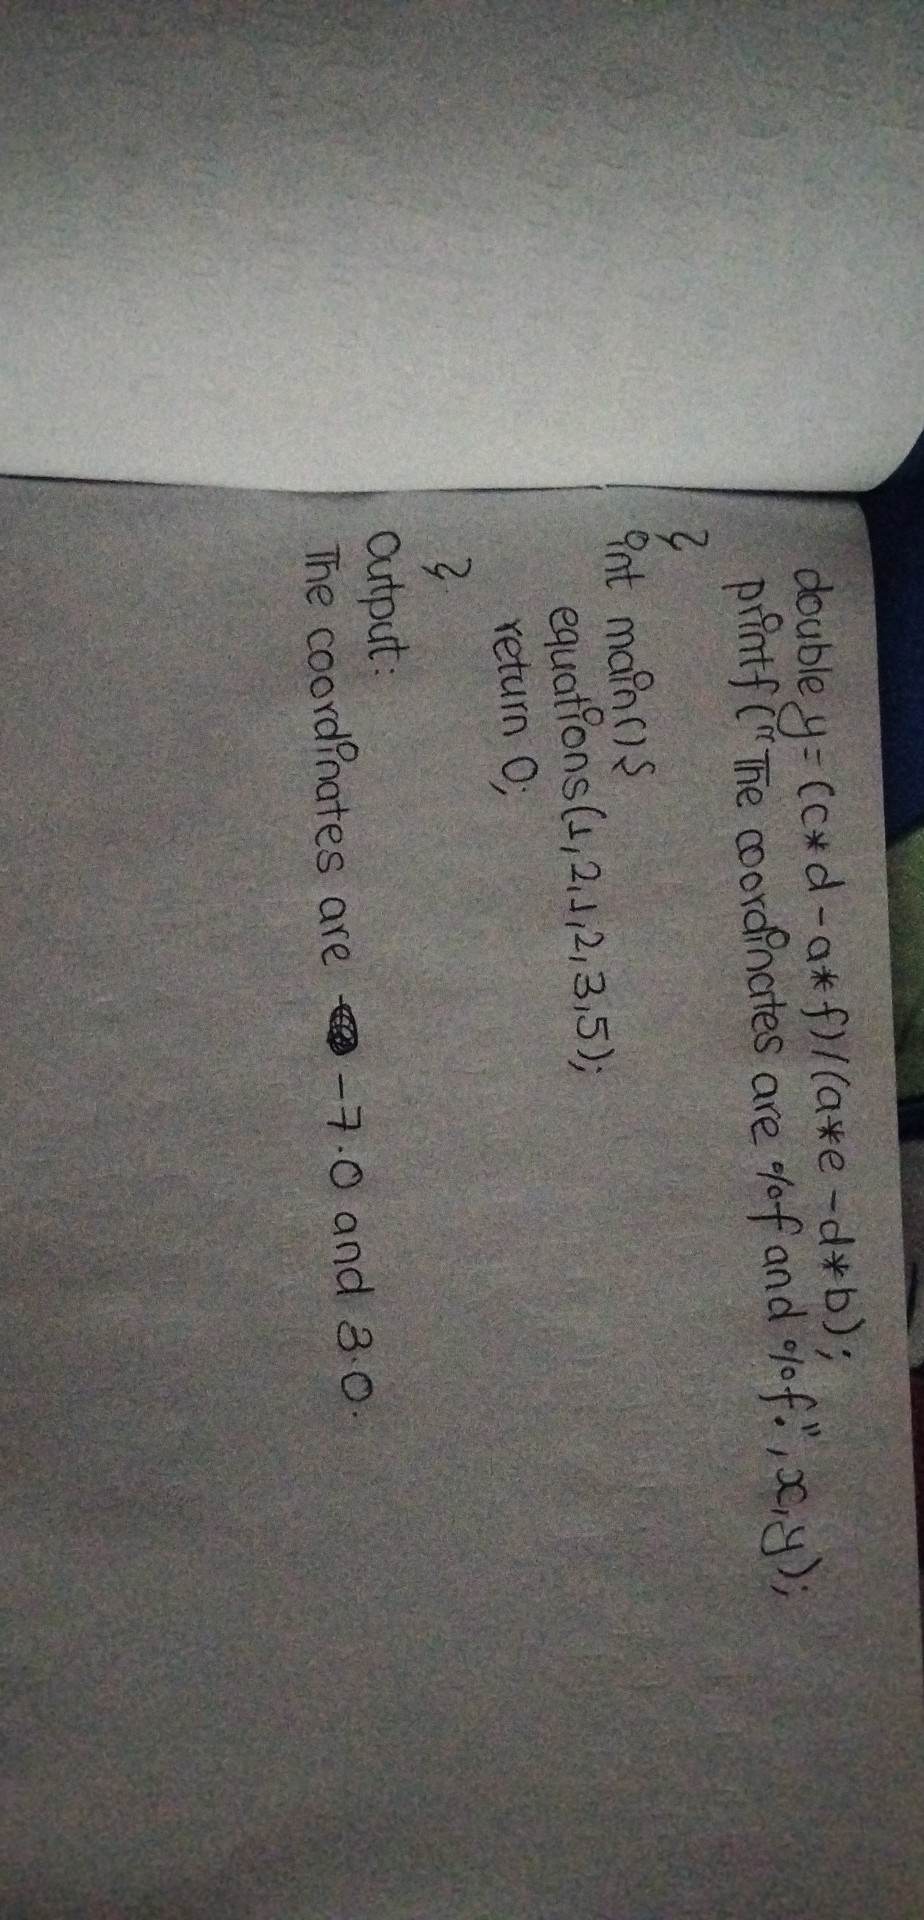 double y = (c*d - a*f)/(a*e - d*b);
printf("The coordinates are %f and %f.", x,y);
}
int main() {
equations(1,2,1,2,3,5);
return 0;
}
Output:
The coordinates are -7.0 and 3.0.